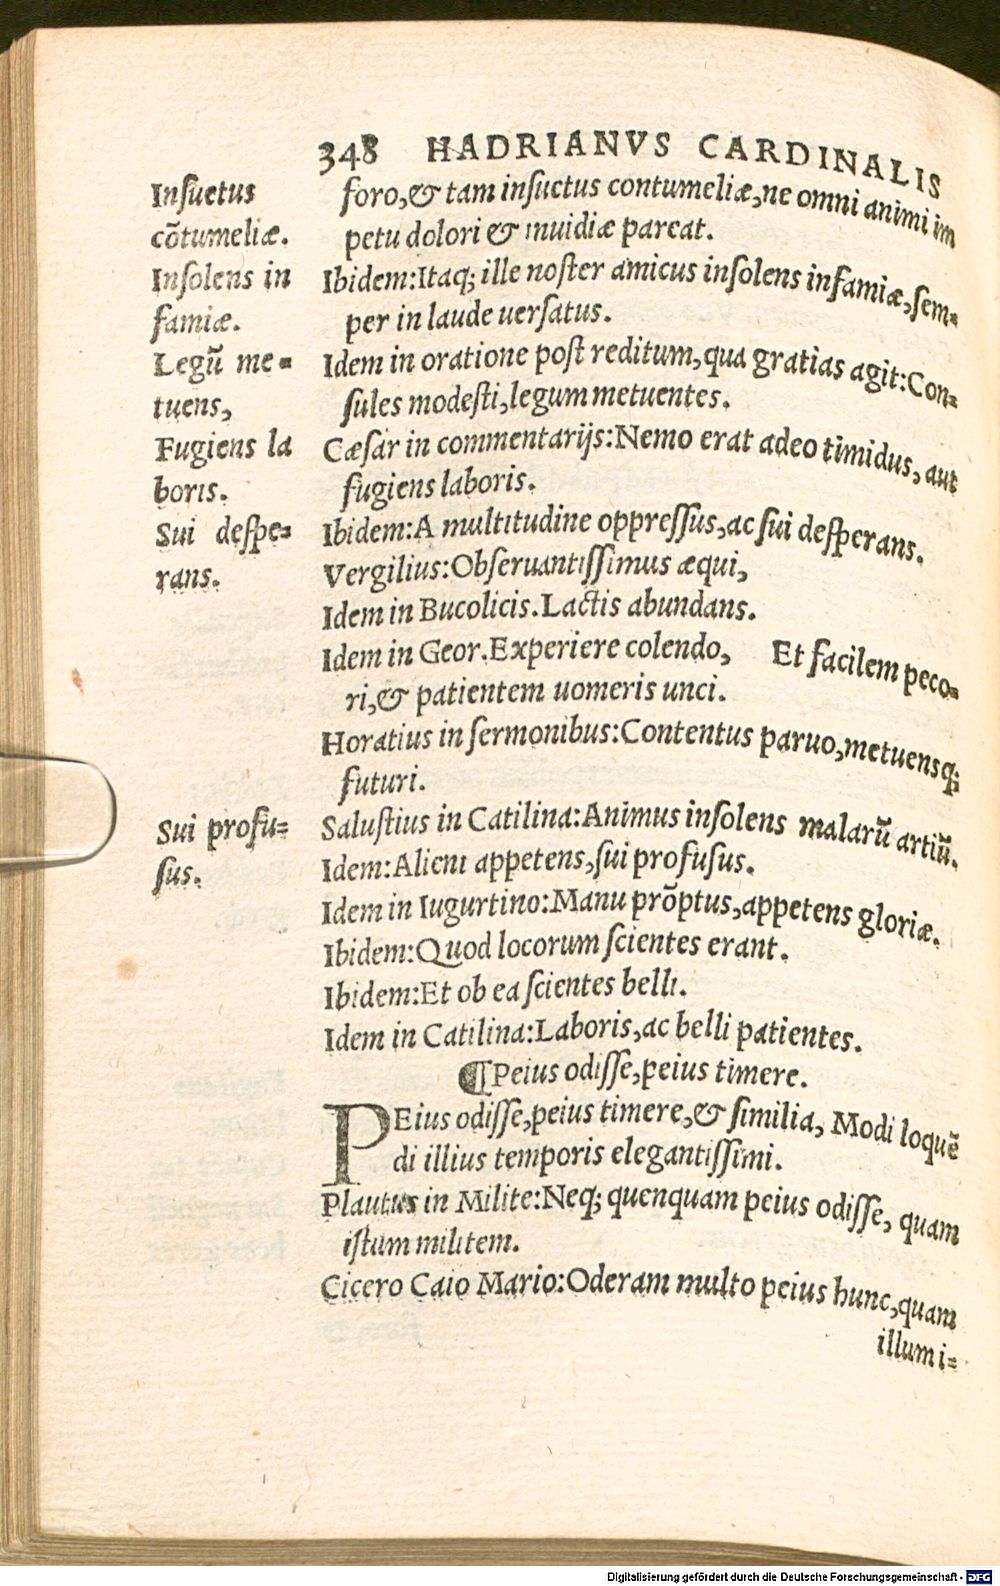 348 HADRIANVS CARDINALIS
Insuetus
cõtumeliæ.
Insolens in
famiæ.
Legũ me=
tuens,
Fugiens la
boris.
Sui despe=
rans.
Sui profu=
sus.
foro,& tam insuetus contumeliæ,ne omni animi im
petu dolori & inuidiæ pareat.
Ibidem:Itaq; ille noster amicus insolens infamiæ,sem=
per in laude uersatus.
Idem in oratione post reditum,qua gratias agit:Con=
sules modesti,legum metuentes.
Cæsar in commentarijs:Nemo erat adeo timidus, aut
fugiens laboris.
Ibidem:A multitudine oppressus,ac sui desperans.
Vergilius:Obseruantissimus æqui,
Idem in Bucolicis.Lactis abundans.
Idem in Geor.Experiere colendo, Et facilem peco=
ri,& patientem uomeris unci.
Horatius in sermonibus:Contentus paruo,metuensq;
futuri.
Salustius in Catilina:Animus insolens malarũ artiũ.
Idem:Alieni appetens,sui profusus.
Idem in Iugurtino:Manu prõptus,appetens gloriæ.
Ibidem:Quod locorum scientes erant.
Ibidem:Et ob ea scientes belli.
Idem in Catilina:Laboris,ac belli patientes.
¶Peius odisse,peius timere.
PEius odisse,peius timere,& similia, Modi loquẽ
di illius temporis elegantissimi.
Plautus in Milite:Neq; quenquam peius odisse, quam
istum militem.
Cicero Caio Mario:Oderam multo peius hunc,quam
illum i=
Digitalisierung gefördert durch die Deutsche Forschungsgemeinschaft - DFG